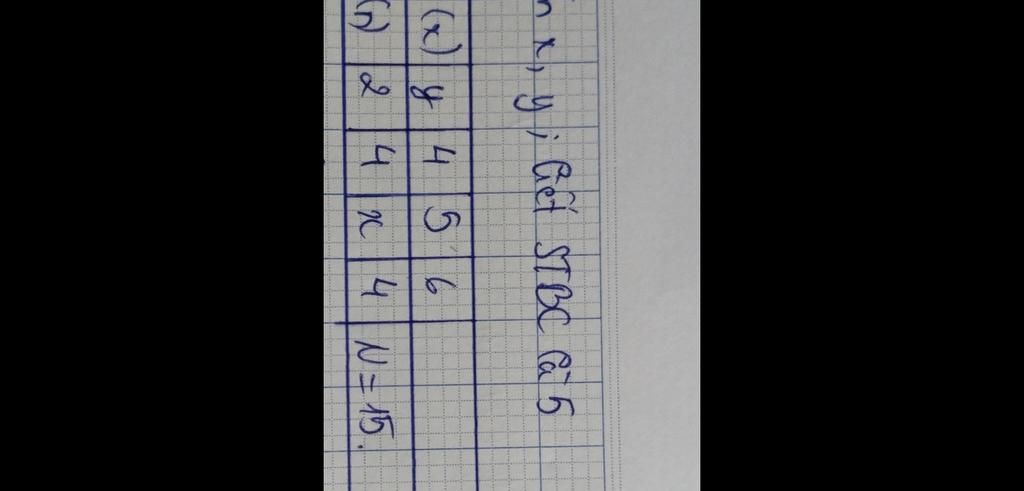 n x, y; biết STBC là 5
(x) y 4 5 6
(n) 2 4 x 4 N = 15.